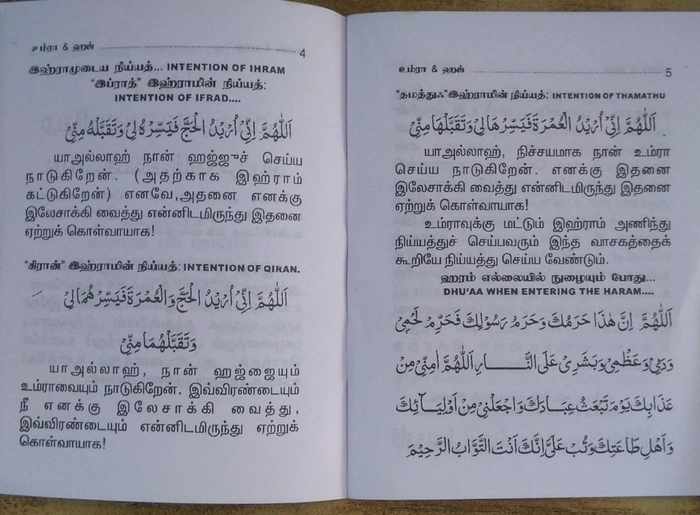 உம்ரா & ஹஜ் 4
இஹ்ராமுடைய நிய்யத்... INTENTION OF IHRAM
“இப்ராத்” இஹ்ராமின் நிய்யத்:
INTENTION OF IFRAD....
اَللّٰهُمَّ اِنِّيْ اُرِيْدُ الْحَجَّ فَيَسِّرْهُ لِيْ وَتَقَبَّلْهُ مِنِّيْ
யாஅல்லாஹ் நான் ஹஜ்ஜுச் செய்ய
நாடுகிறேன். (அதற்காக இஹ்ராம்
கட்டுகிறேன்) எனவே,அதனை எனக்கு
இலேசாக்கி வைத்து என்னிடமிருந்து இதனை
ஏற்றுக் கொள்வாயாக!
“கிரான்” இஹ்ராமின் நிய்யத்: INTENTION OF QIRAN.
اَللّٰهُمَّ اِنِّيْ اُرِيْدُ الْحَجَّ وَالْعُمْرَةَ فَيَسِّرْهُمَا لِيْ
وَتَقَبَّلْهُمَا مِنِّيْ
யாஅல்லாஹ், நான் ஹஜ்ஜையும்
உம்ராவையும் நாடுகிறேன். இவ்விரண்டையும்
நீ எனக்கு இலேசாக்கி வைத்து,
இவ்விரண்டையும் என்னிடமிருந்து ஏற்றுக்
கொள்வாயாக!
உம்ரா & ஹஜ் 5
“தமத்துஃ”இஹ்ராமின் நிய்யத்: INTENTION OF THAMATHU
اَللّٰهُمَّ اِنِّيْ اُرِيْدُ الْعُمْرَةَ فَيَسِّرْهَا لِيْ وَتَقَبَّلْهَا مِنِّيْ
யாஅல்லாஹ், நிச்சயமாக நான் உம்ரா
செய்ய நாடுகிறேன். எனக்கு இதனை
இலேசாக்கி வைத்து என்னிடமிருந்து இதனை
ஏற்றுக் கொள்வாயாக!
உம்ராவுக்கு மட்டும் இஹ்ராம் அணிந்து
நிய்யத்துச் செய்பவரும் இந்த வாசகத்தைக்
கூறியே நிய்யத்து செய்ய வேண்டும்.
ஹரம் எல்லையில் நுழையும் போது...
DHU'AA WHEN ENTERING THE HARAM....
اَللّٰهُمَّ اِنَّ هٰذَا حَرَمُكَ وَحَرَمُ رَسُوْلِكَ فَحَرِّمْ لَحْمِيْ
وَدَمِيْ وَعَظْمِيْ وَبَشَرِيْ عَلَى النَّارِ اَللّٰهُمَّ اٰمِنِّيْ مِنْ
عَذَابِكَ يَوْمَ تَبْعَثُ عِبَادَكَ وَاجْعَلْنِيْ مِنْ اَوْلِيَآئِكَ
وَاَهْلِ طَاعَتِكَ وَتُبْ عَلَيَّ اِنَّكَ اَنْتَ التَّوَّابُ الرَّحِيْمُ